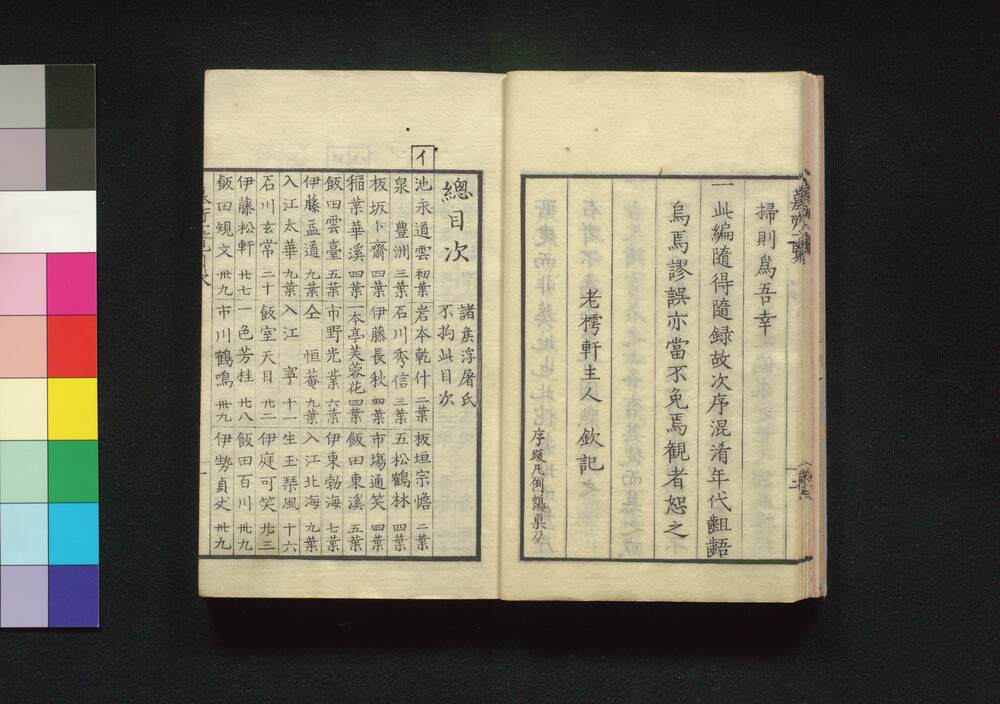 掃則爲吾幸
一此編隨得隨録故次序混淆年代齟齬
烏焉謬誤亦當不免焉観者恕之
老樗軒主人 欽記
總目次
諸矦浮屠氏
不拘此目次
イ 池永道雲 初葉 岩本乾什 二葉 板垣宗憺 二葉
泉 豊洲 三葉 石川秀信 三葉 五松鶴林 四葉
板坂卜齋 四葉 伊藤長秋 四葉 市塲通笑 四葉
稲葉華溪 四葉 一本亭芙蓉花 四葉 飯田東溪 五葉
飯田雲臺 五葉 市野光業 六葉 伊東勃海 七葉
伊藤益通 九葉 仝 恒菴 九葉 入江北海 九葉
入江太華 九葉 入江 寧 十一 生玉琴風 十六
石川玄常 二十 飯室天目 廿二 伊庭可笑 廿三
伊藤松軒 廿七 一色芳桂 廿八 飯田百川 卅九
飯田規文 卅九 市川鶴鳴 卅九 伊勢貞丈 卅九